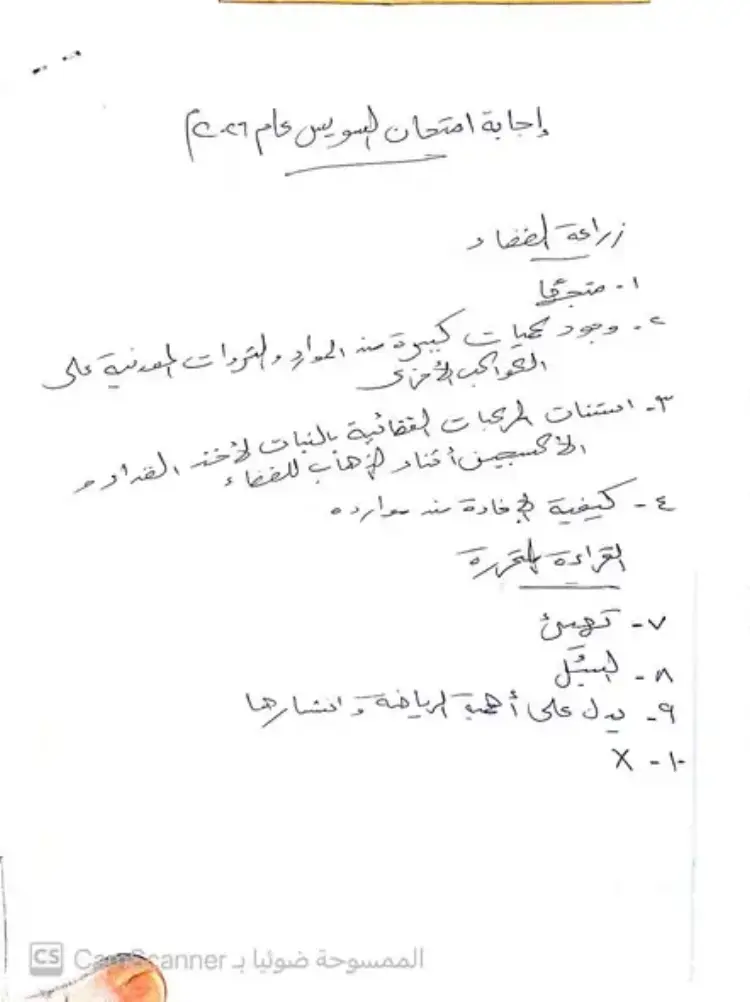 إجابة امتحان السويس عام ٢٠٢٦م
زراعة الفضاء
١- متجهًا
٢- وجود كميات كبيرة من الموارد والثروات المعدنية على
الكواكب الأخرى
٣- استنبات المركبات الفضائية بالنبات لأخذ الغذاء و
الأكسجين أثناء الذهاب للفضاء
٤- كيفية الإفادة من موارده
القراءة المتحررة
٧- تهيئ
٨- السُّبُل
٩- يدل على أهمية الرياضة وانتشارها
١٠- X
CS CamScanner الممسوحة ضوئيا بـ